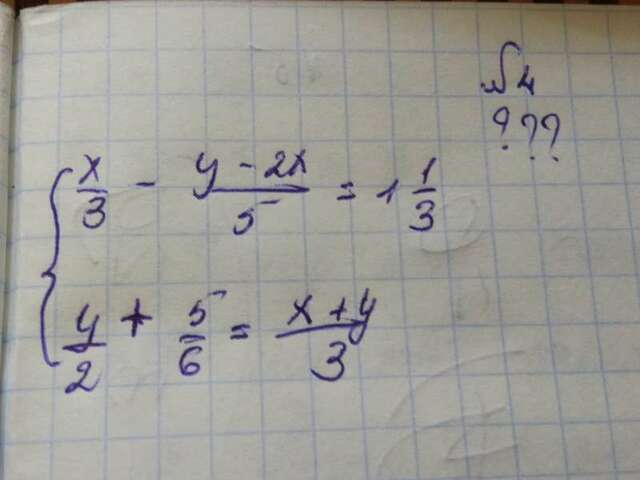 №4
???
x/3 - (y - 2x)/5 = 1 1/3
y/2 + 5/6 = (x + y)/3